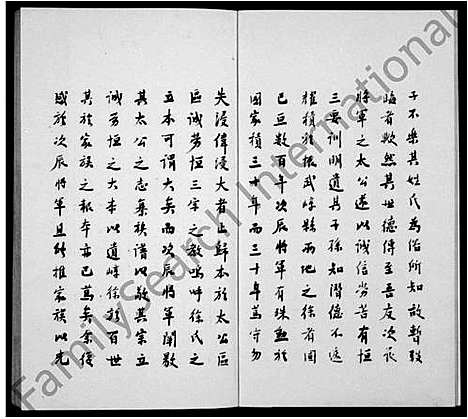 子不樂其姓氏為俗所知故暫致
臨者歟然其世德傳至吾友次辰
將軍之太公遂以誠信勞苦有恒
三要訓明道其子孫知潛德不遠
耀積於振武嶧縣兩地之徐者固
已亘數百年次辰將軍有殊勳於
國家積三十年而三十年萬守勿
失浸偉浸大者正歸本於太公區
區誠勞恒三字之教嗚呼徐氏之
立本可謂大矣而次辰將軍闡敭
其太公之志彙族譜以統其宗立
誠勞恒之大本以遒嶧徐於百世
其於家族之報本亦已篤矣余復
感於次辰將軍且能推家族以先
FamilySearch International